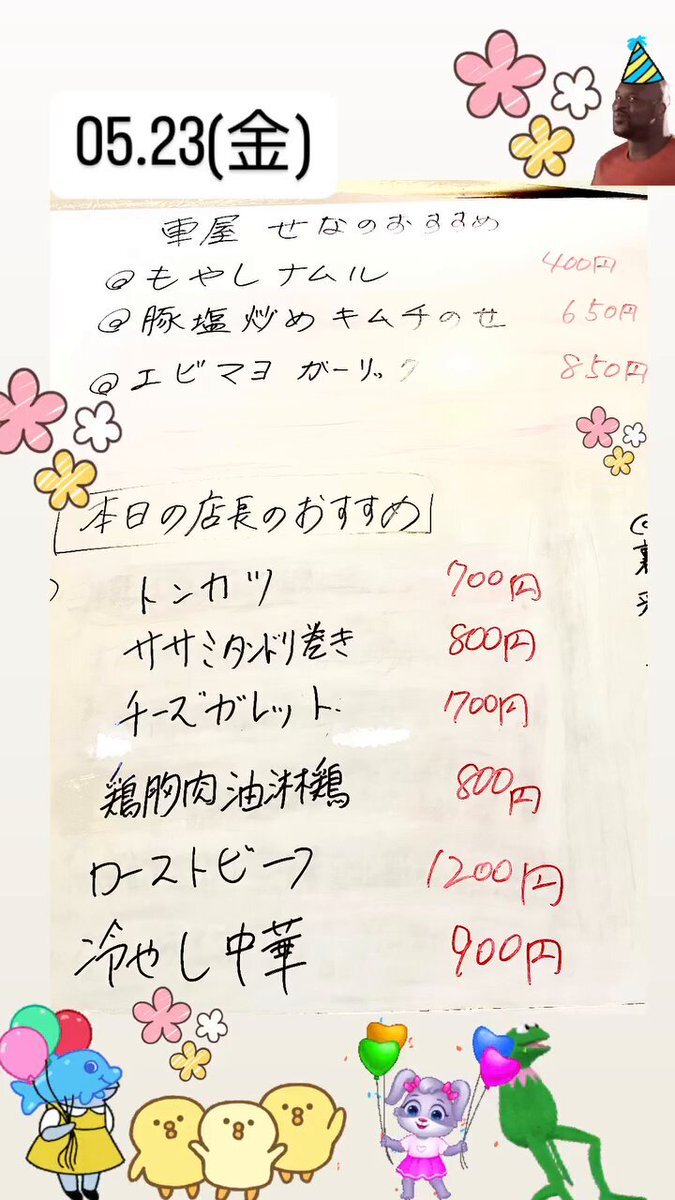 05.23(金)
車屋 せなのおすすめ
@もやしナムル 400円
@豚塩炒めキムチのせ 650円
@エビマヨガーリック 850円
本日の店長のおすすめ
トンカツ 700円
ササミタンドリ巻き 800円
チーズガレット 700円
鶏胸肉油淋鶏 800円
ローストビーフ 1200円
冷やし中華 900円